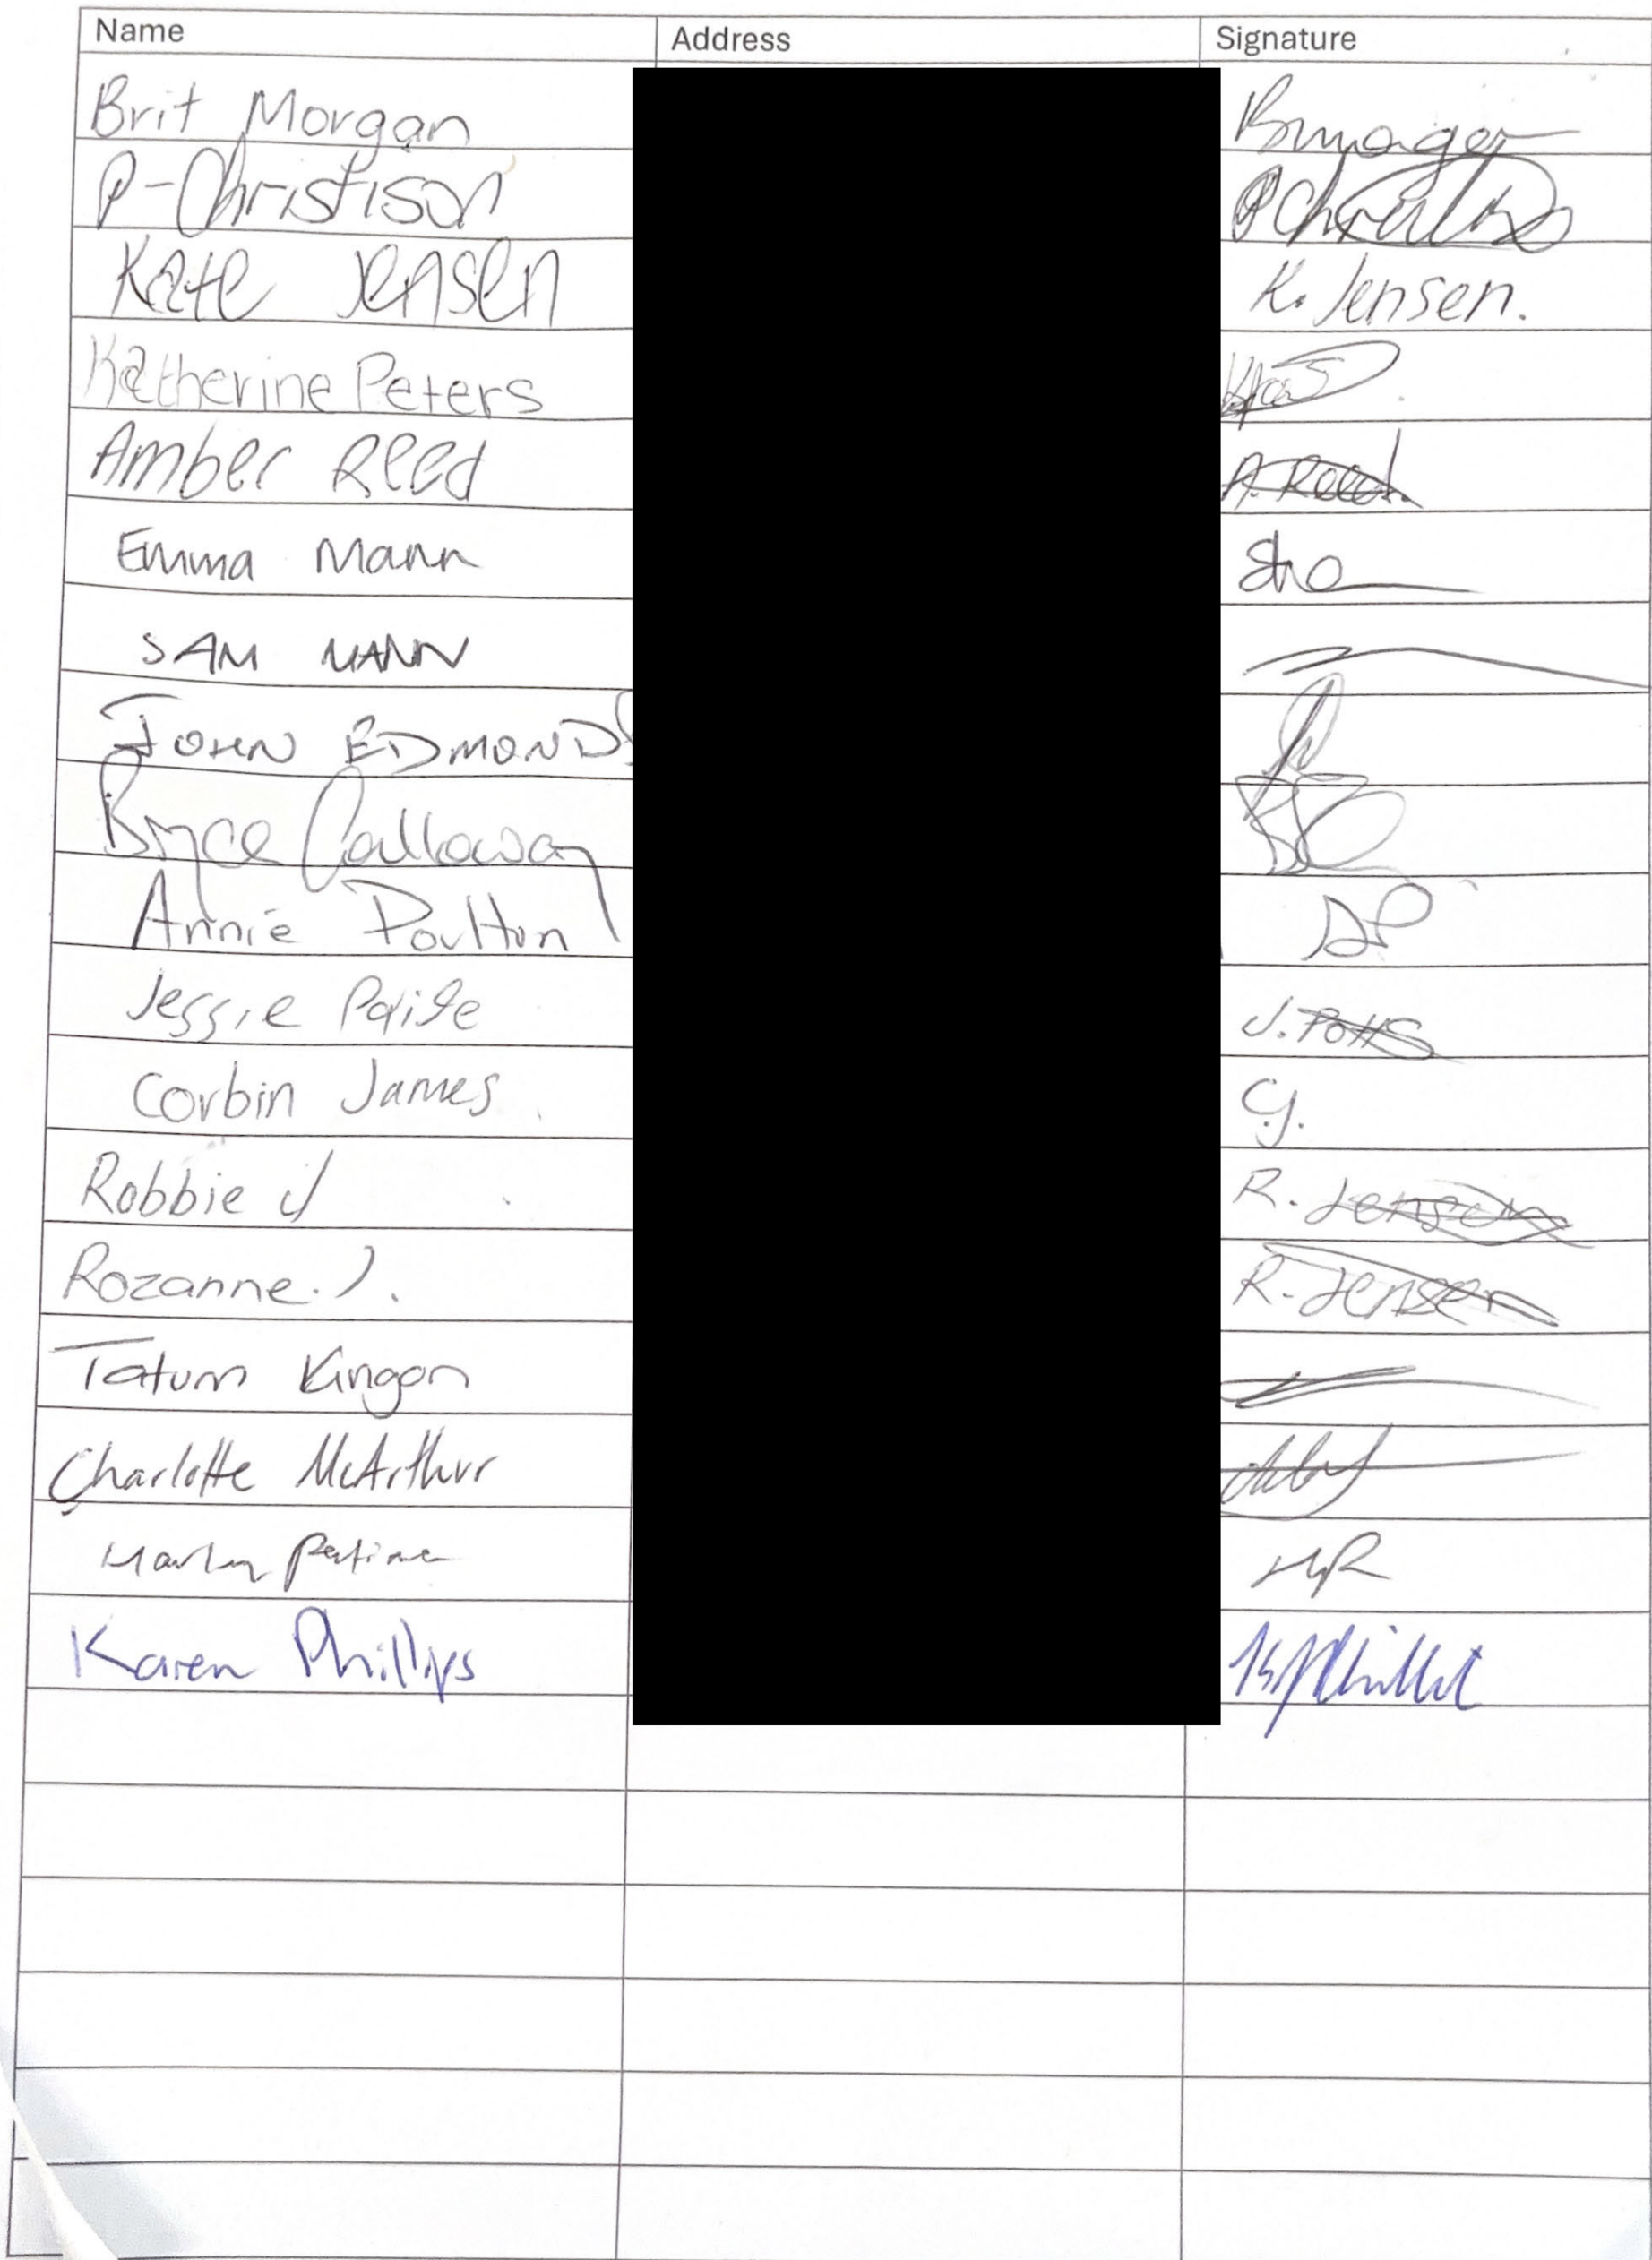 Name Address Signature
Brit Morgan
P-Christison
Kate Jensen K. Jensen.
Katherine Peters
Amber Reed A. Reed
Emma Mann
SAM MANN
JOHN EDMONDS
Bryce Calloway
Annie Poulton AP
Jessie Paige J. Potts
Corbin James CJ.
Robbie J R. Jensen
Rozanne. J. R. Jensen
Tatum Kingon
Charlotte McArthur
Karen Phillips